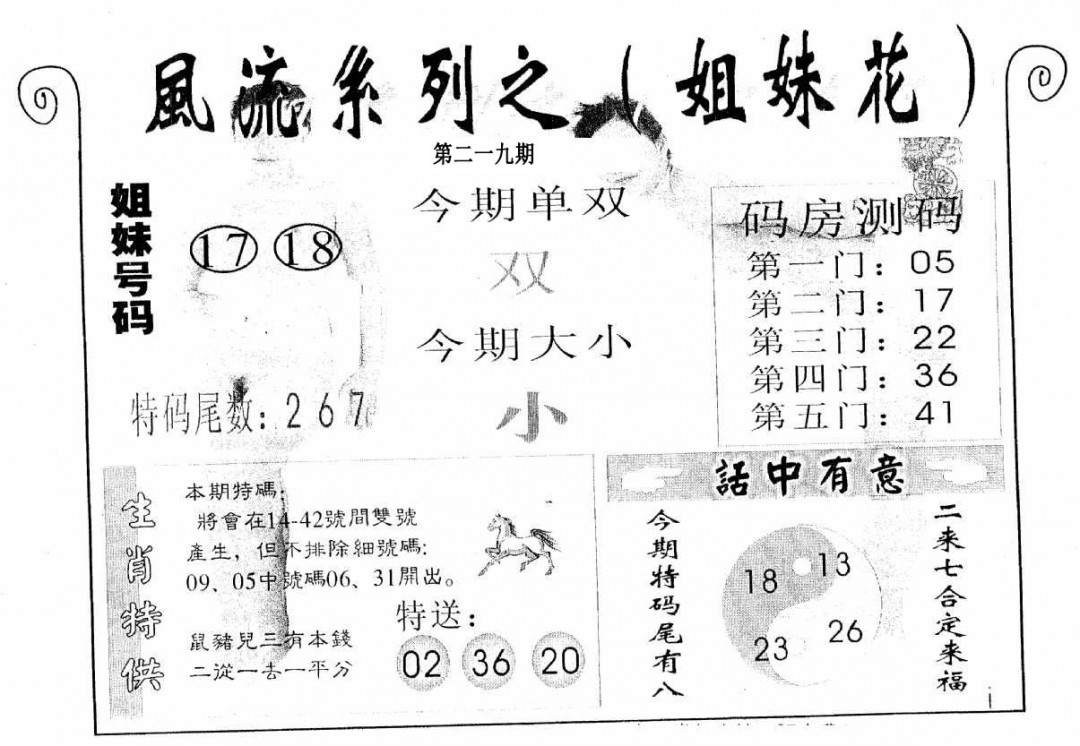 風流系列之（姐妹花）
第二一九期
姐妹号码
17 18
特码尾数：267
今期单双
双
今期大小
小
码房测码
第一门：05
第二门：17
第三门：22
第四门：36
第五门：41
生肖特供
本期特碼：
將會在14-42號間雙號
產生，但不排除細號碼：
09、05中號碼06、31開出。
鼠豬兒三有本錢
二從一去一平分
特送：
02 36 20
話中有意
今期特码尾有八
18 13
23 26
二来七合定来福